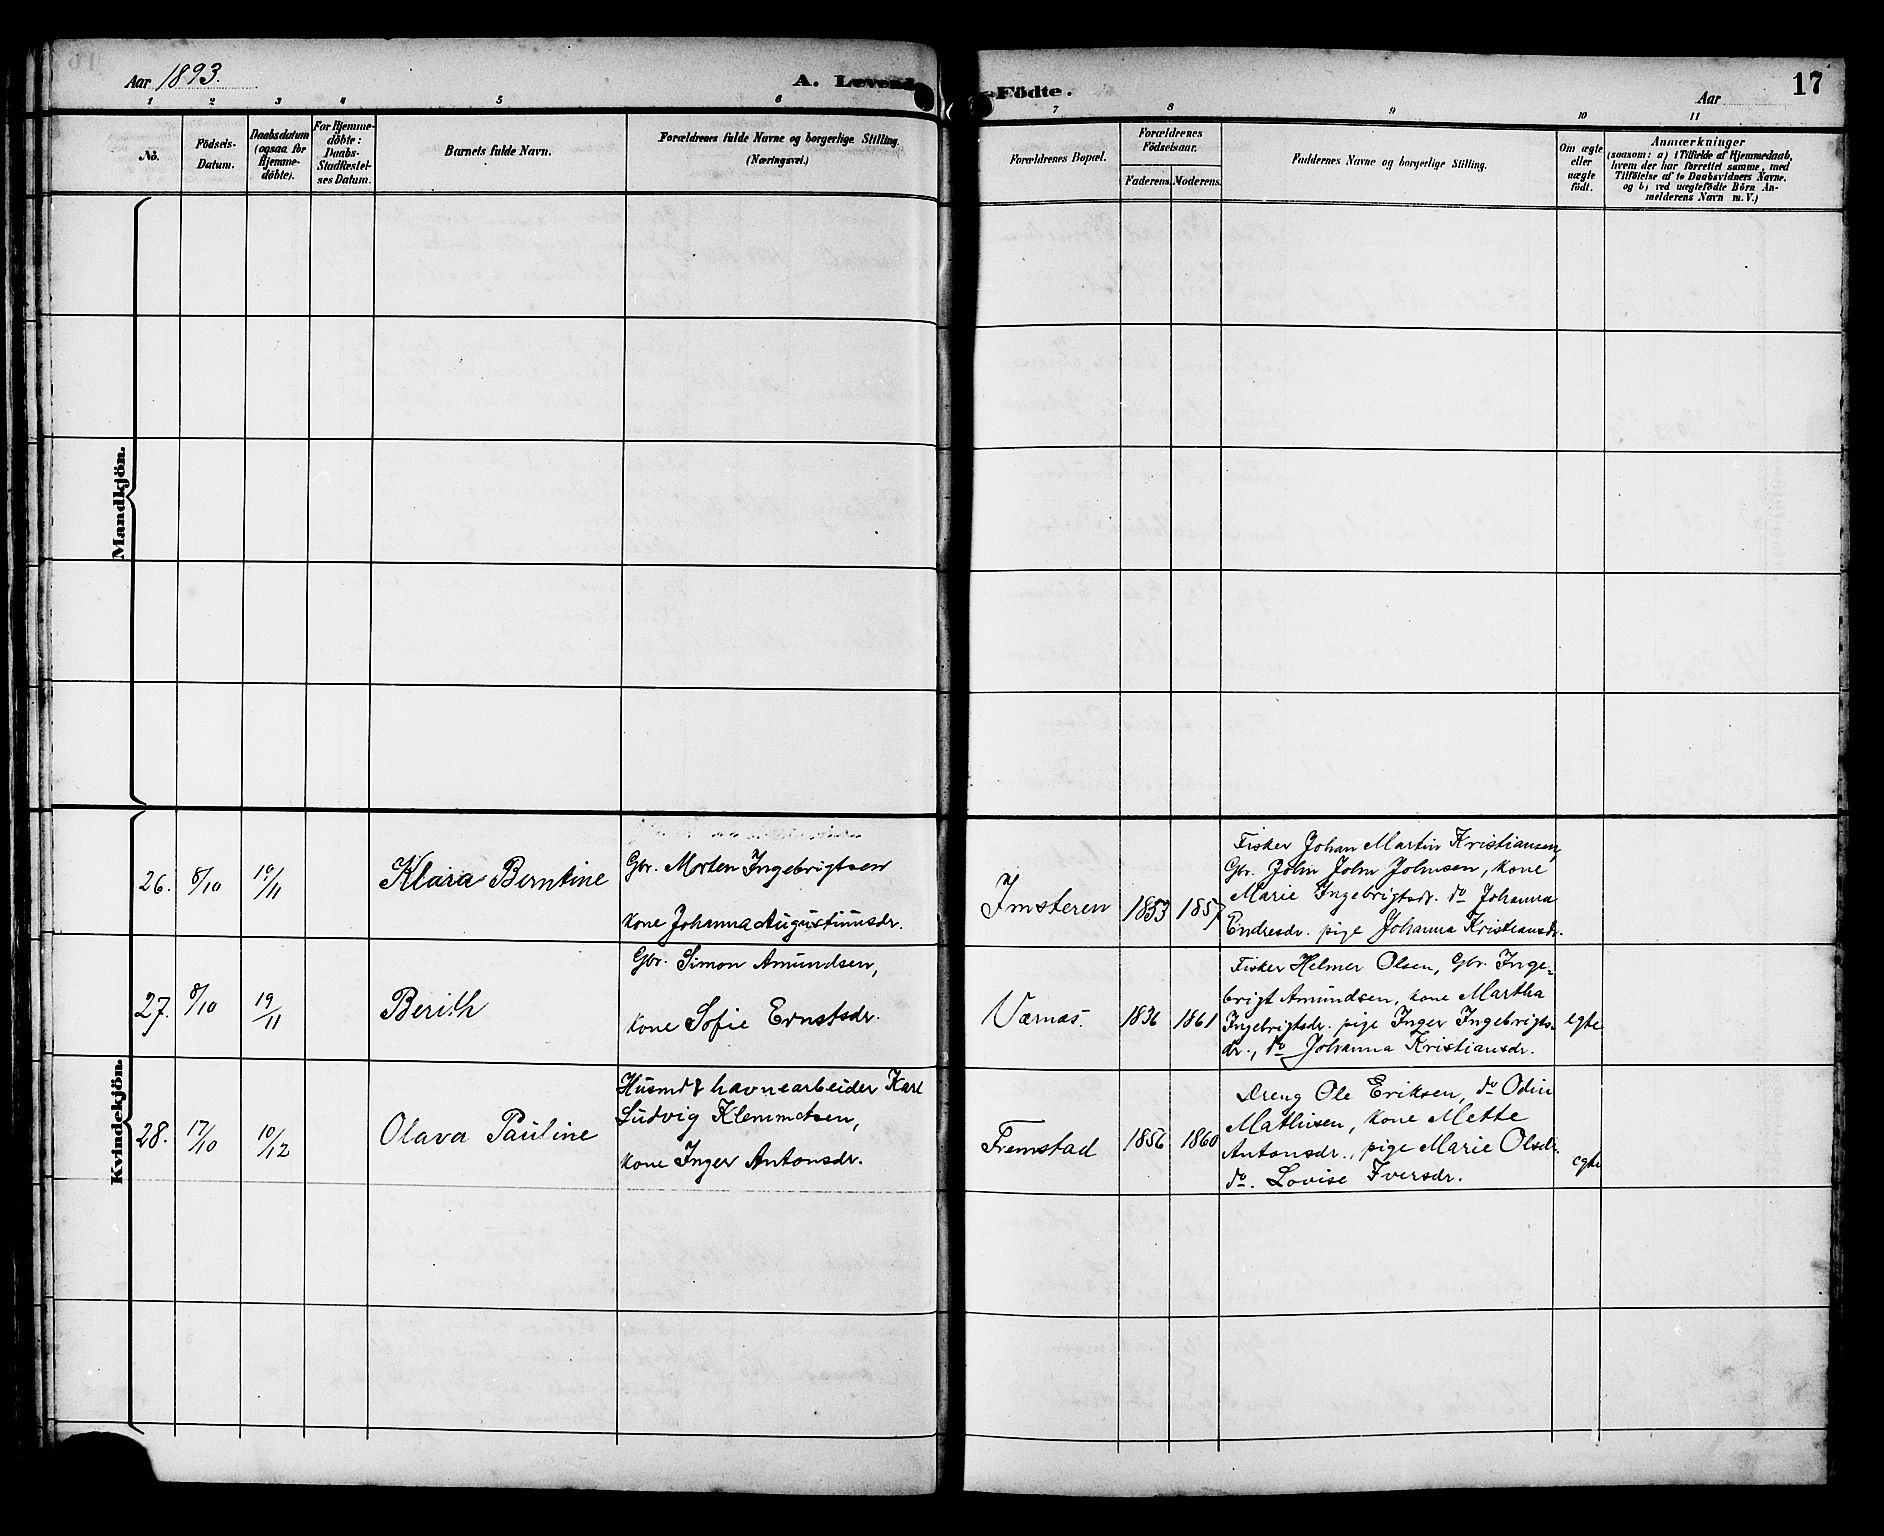 Aar 1893.
A. Levende
Födte.
Aar
17
1 2 3 4 5 6 7 8 9 10 11
No.
Födsels-
Datum.
Daabsdatum
(ogsaa for
Hjemme-
döbte).
For Hjemme-
döbte:
Daabs-
Stadfæstel-
ses Datum.
Barnets fulde Navn.
Forældrenes fulde Navne og borgerlige Stilling.
(Næringsvei.)
Forældrenes Bopæl.
Forældrenes
Födselsaar.
Faderens.
Moderens.
Faddernes Navne og borgerlige Stilling.
Om ægte
eller
uægte
födt.
Anmærkninger
(saasom: a) i Tilfælde af Hjemmedaab,
hvem der har forrettet samme, med
Tilföielse af to Daabsvidners Navne,
og b) ved uægtefödte Börn An-
melderens Navn m. V.)
Mandkjön.
Kvindekjön.
26. 8/10 19/11 Klara Berntine
Gbr. Morten Ingebrigtsen
kone Johanna Augustinusdr.
Imsteren 1853 1857
Fisker Johan Martin Kristiansen,
Gbr. John John Johnsen, kone
Marie Ingebrigtsdr. do Johanna
Endresdr. pige Johanna Kristiansdr.
27. 8/10 19/11 Berith
Gbr. Simon Amundsen,
kone Sofie Ernstsdr.
Værnæs. 1836 1861
Fisker Helmer Olsen, Gbr. Inge-
brigt Amundsen, kone Martha
Ingebrigtsdr. pige Inger Ingebrigts-
dr., do Johanna Kristiansdr.
egte
28. 17/10 10/12 Olava Pauline
Husmd & havnearbeider Karl
Ludvig Klemmetsen,
kone Inger Antonsdr.
Fremstad 1856 1860
Dreng Ole Eriksen, do Odin
Mathisen, kone Mette
Antonsdr., pige Marie Olsdr.
do. Lovise Iversdr.
egte